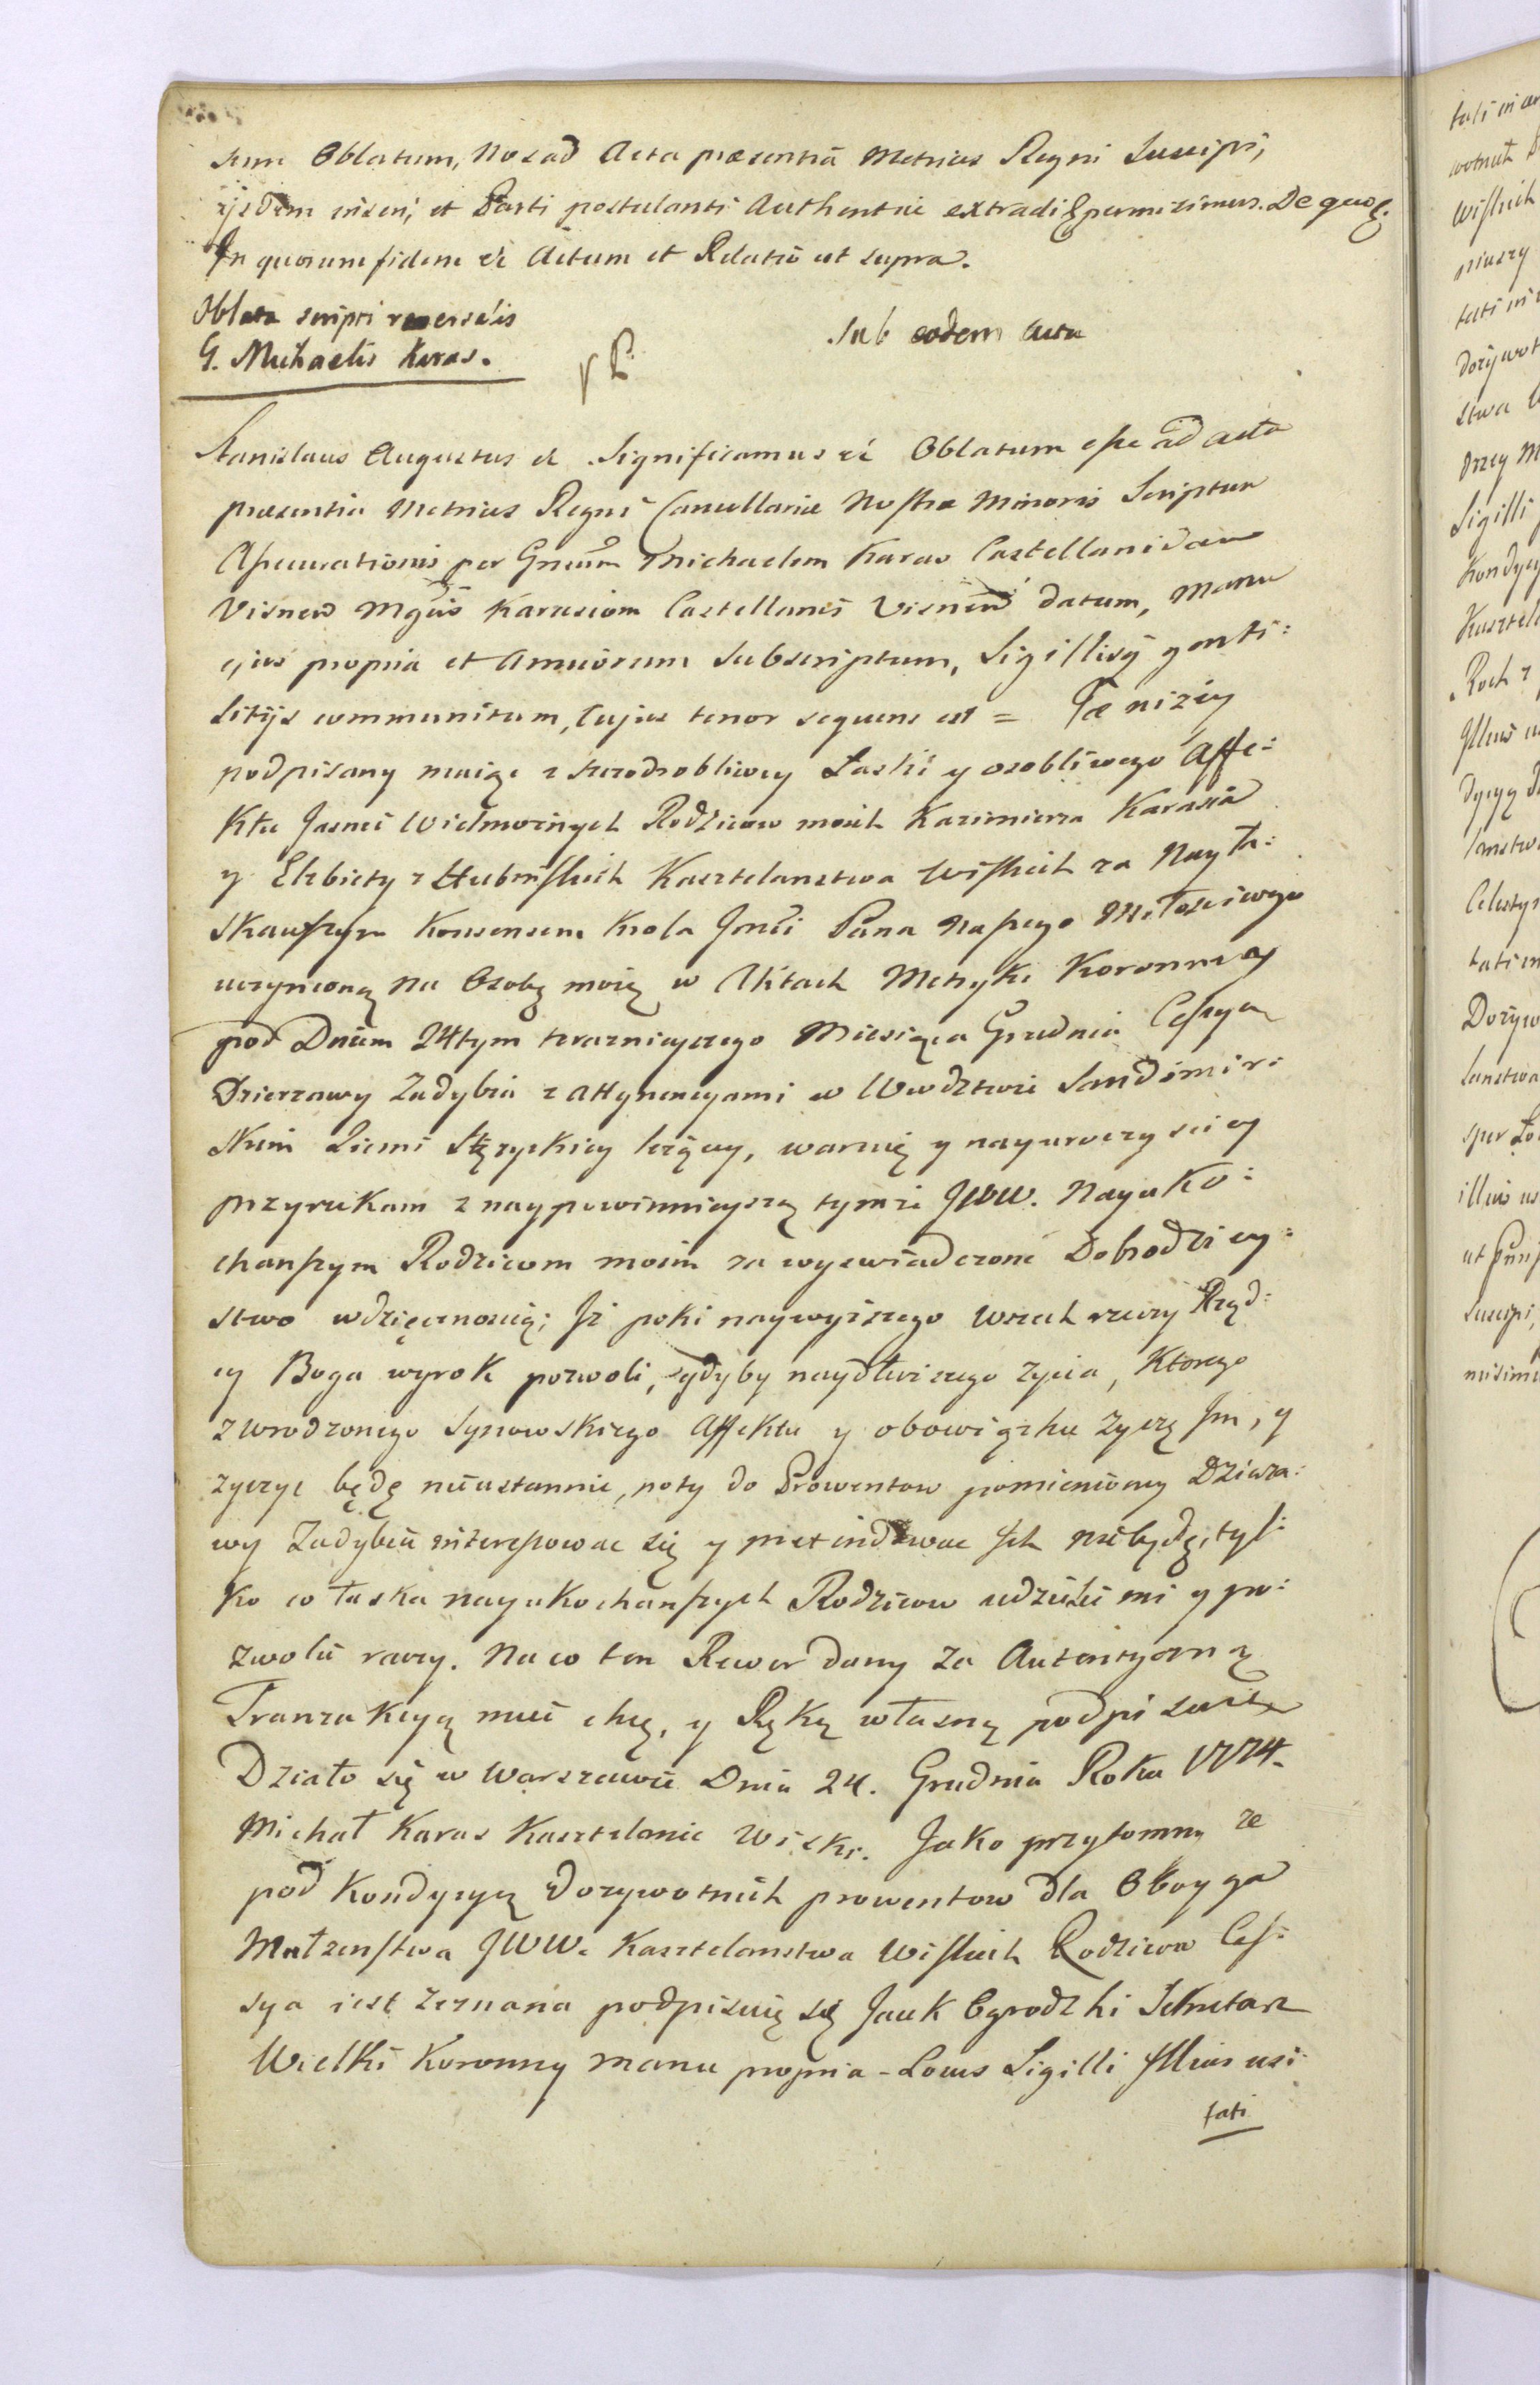 sum Oblatum, Nos ad Acta præsentiā Metrices Regni Suscipi,
ijsdem inseri, et Parti postulanti Authentice extradi permisimus. De quo
In quorum fidem &c Actum et Relatio ut supra.
Oblata scripti reversalis
G. Michaelis Karas.
Sub eodem actu
Stanislaus Augustus &c Significamus &c Oblatum esse ad acta
præsentia Metrices Regni Cancellariæ Nostræ Minoris Scriptum
Assecurationis per Gnrūm Michaelem Karas Castellanidam
Visnen Mgcis Karasiom Castellanis Visnen datum, manu
ejus propria et Amicorum Subscriptum, Sigillisq genti:
litijs communitum, Cujus tenor sequens est = Ja niżey
podpisany maiąc z szczodrobliwey Łaski y osobliwego Affe:
Ktu Jasnie Wielmożnych Rodzicow moich Kazimierza Karasia
y Elzbiety z Kasztelanstwa Wiskich za Nayła:
skawszym Konsensem Krola Jmci Pana Naszego Miłosciwego
uczynioną na Osobę moię w Aktach Metryki Koronney
pod Dniem 24tym teraznieyszego Miesiąca Grudnia Cessyą
Dzierzawy Zadybia z attynencyami w Wwdztwie Sandomir:
skim Ziemi Stęzyckiey leżącey, waruię y nayuroczysciey
przyrzekam z naypowinnieyszą tymże JWW. Nayuko:
chanszym Rodzicom moim za wyswiadczone Dobrodziey:
stwo wdzięcznoscią; Iż poki naywyższego wszech rzeczy Rząd:
cy Boga wyrok pozwoli, gdyby naydłuzszego zycia, Ktorego
z wrodzonego Synowskiego Affektu y obowiązku zyczę Im, y
zyczyc będę nieustannie, poty do Prowentow pomienioney Dzierza:
wy Zadybia interessowac się y pretendowac Ich niebędę, tyl:
ko co łaska nayukochanszych Rodzicow udzieli mi y po:
zwolić raczy. Na co ten Rewer dany za Autentyczną
Tranzakcyą miec chcę, y Ręką własną podpisuię
Działo się w Warszawie Dnia 24. Grudnia Roku 1774.
Michał Karas Kasztelanic Wiski. Jako przytomny ze
pod Kondycyą Dozywotnich prowentow dla Oboyga
Małzenstwa JWW. Kasztelanstwa Wiskich Rodzicow Ces:
sya iest zeznana podpisuię się Jacek Ogrodzki Sekretarz
Wielki Koronny manu propria - Locus Sigilli Illius usi
tati